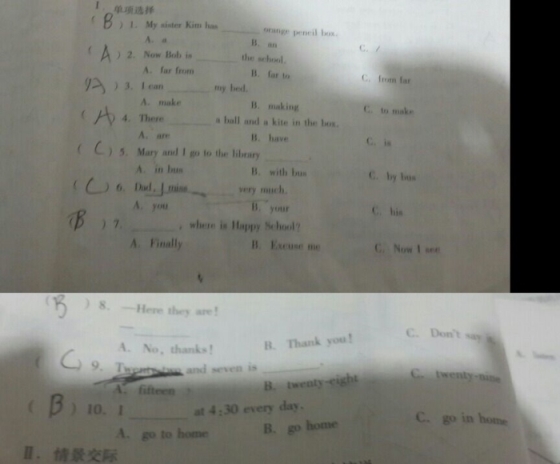 I 单项选择
( B ) 1. My sister Kim has ______ orange pencil box.
A. a B. an C. /
( A ) 2. Now Bob is ______ the school.
A. far from B. far to C. from far
( A ) 3. I can ______ my bed.
A. make B. making C. to make
( A ) 4. There ______ a ball and a kite in the box.
A. are B. have C. is
( C ) 5. Mary and I go to the library ______.
A. in bus B. with bus C. by bus
( C ) 6. Dad, I miss ______ very much.
A. you B. your C. his
( B ) 7. ______, where is Happy School?
A. Finally B. Excuse me C. Now I see
( B ) 8. —Here they are!
— ______
A. No, thanks! B. Thank you! C. Don't say
( C ) 9. Twenty-two and seven is ______.
A. fifteen B. twenty-eight C. twenty-nine
( B ) 10. I ______ at 4:30 every day.
A. go to home B. go home C. go in home
II. 情景交际